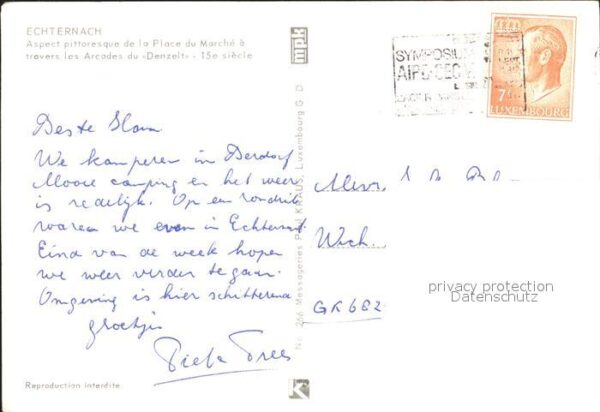 ECHTERNACH
Aspect pittoresque de la Place du Marché à
travers les Arcades du «Denzelt» - 15e siècle
mpk
SYMPOSIUM
7F
LUXEMBOURG
Beste
We kamperen in Berdorf
Mooie camping en het weer
is redelijk. Op een rondrit
waren we even in Echternach
Eind van de week hopen
we weer verder te gaan.
Omgeving is hier schitterend
groetjes
No. 266 Messageries Paul KRAUS, Luxembourg G D
Mevr.
GK682
privacy protection
Datenschutz
Reproduction interdite.
K